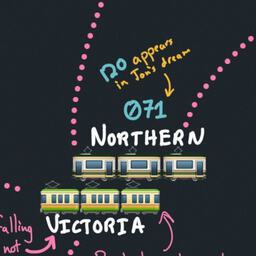 no appears
in Jon's dream
071
NORTHERN
VICTORIA
alling
not